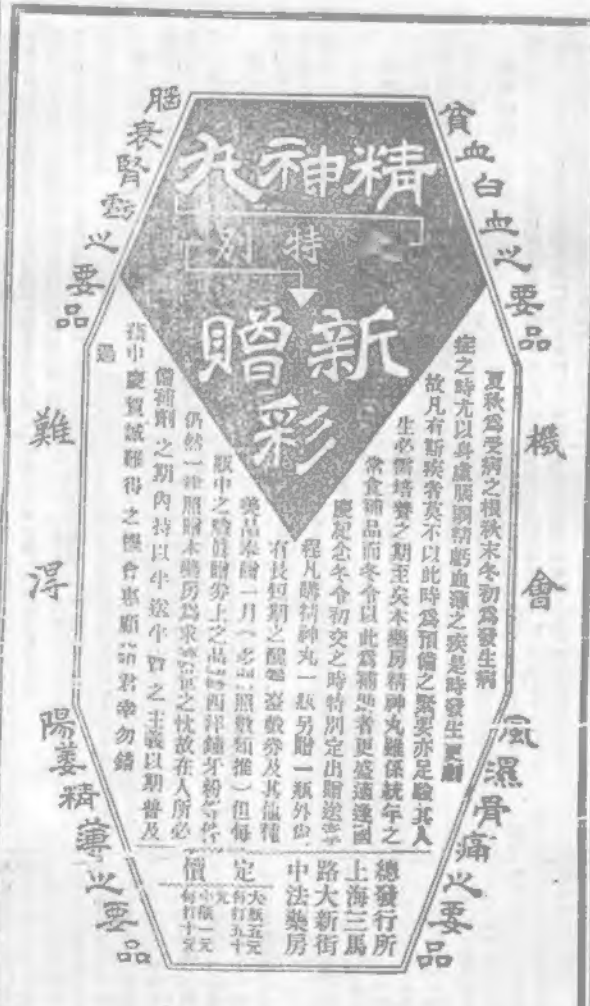 貧血白血之要品
腦衰腎虧之要品
機會
難得
風濕骨痛之要品
陽萎精薄之要品
精神丸
特別
新贈
彩
夏秋爲受病之根秋末冬初爲發生病
症之時尤以身虛腦弱精虧血薄之疾是時發生更劇
故凡有斯疾者莫不以此時爲預備之緊要亦足驗其人
生必需培養之期至矣本藥房精神丸雖係統年之
常食補品而冬令以此爲補品者更盛適逢國
慶紀念冬令初交之時特別定出贈送章
程凡購精神丸一瓶另贈一瓶外與
有長包期之醒獅遊戲券及其他種
美品奉贈一月(多 照數類推)但每
瓶中之 贈券上之品 西洋鐘牙粉等件
仍然一律照贈本藥房爲求 之忱故在人所必
備補劑之期內特以半送半賣之主義以期普及
藉申慶賀誠難得之機會惠顧諸君幸勿錯
過
總發行所
上海三馬
路大新街
中法藥房
定價
大瓶五元
每打五十
元
小瓶一元
每打十元